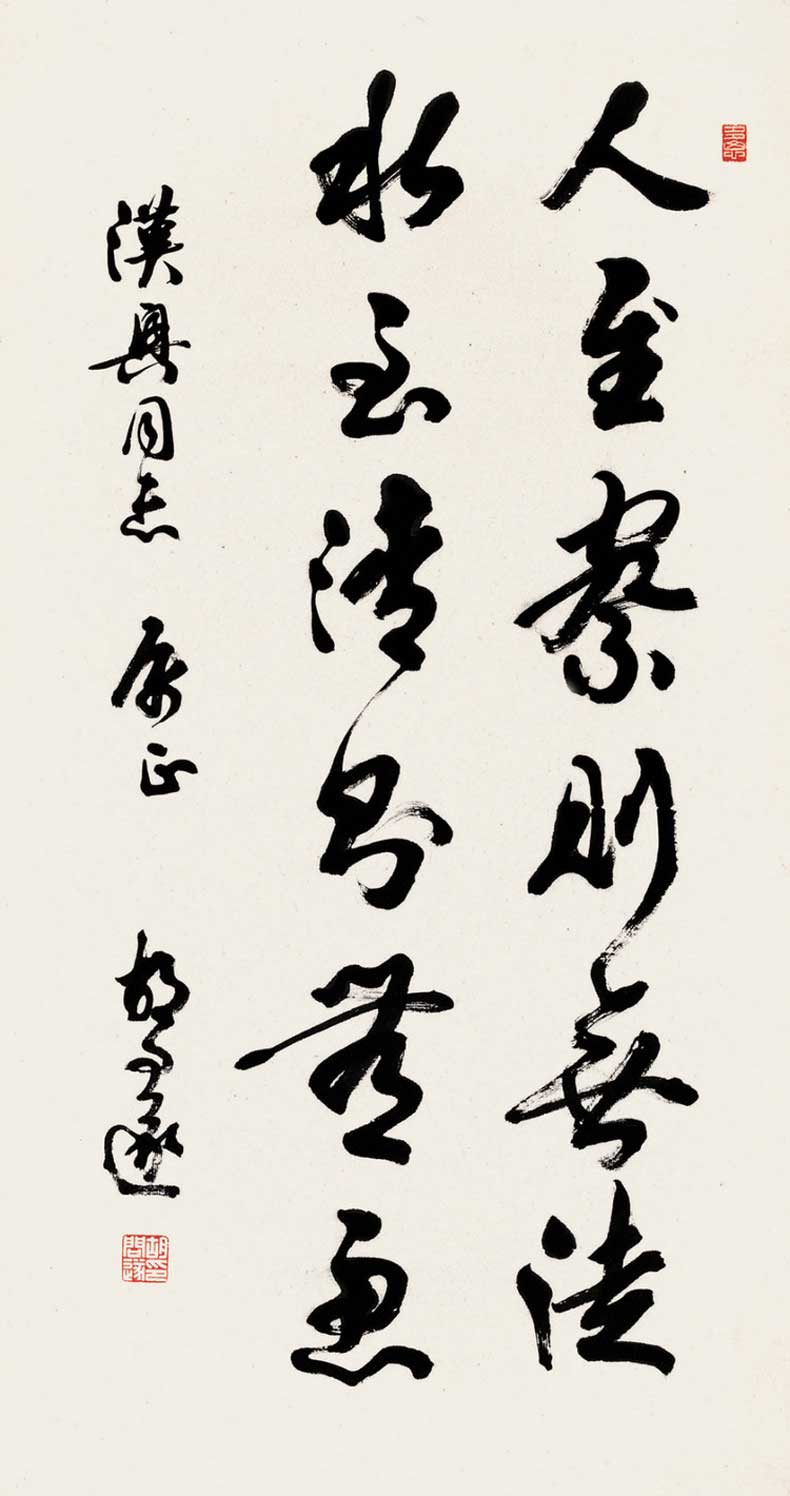 人至察則無徒
水至清則無魚
漢興同志 属正 胡問遂
胡問遂印